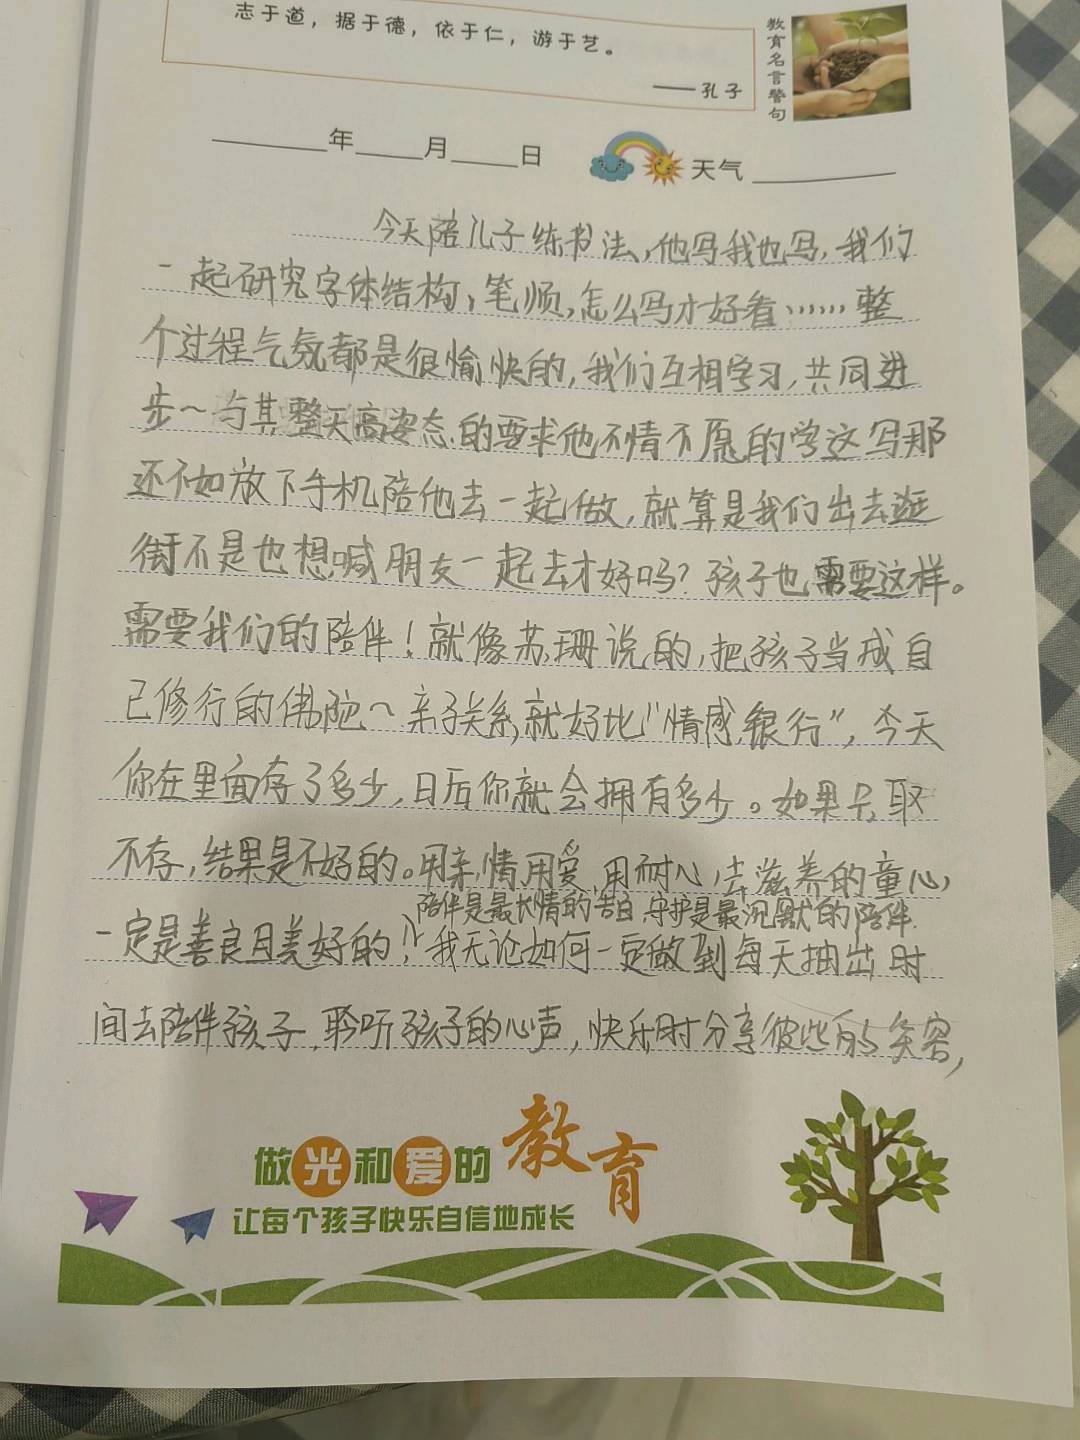 志于道，据于德，依于仁，游于艺。
——孔子
教育名言警句
年 月 日 天气
今天陪儿子练书法，他写我也写，我们
一起研究字体结构，笔顺，怎么写才好看……整
个过程气氛都是很愉快的，我们互相学习，共同进
步～与其整天高姿态的要求他不情不愿的学这写那
还不如放下手机陪他去一起做，就算是我们出去逛
街不是也想喊朋友一起去才好吗？孩子也需要这样。
需要我们的陪伴！就像苏珊说的，把孩子当成自
己修行的佛陀～亲子关系，就好比“情感银行”，今天
你在里面存了多少，日后你就会拥有多少。如果只取
不存，结果是不好的。用亲情用爱，用耐心，去滋养的童心，
陪伴是最长情的告白，守护是最沉默的陪伴.
一定是善良且美好的！我无论如何一定做到每天抽出时
间去陪伴孩子，聆听孩子的心声，快乐时分享彼此的笑容，
做光和爱的教育
让每个孩子快乐自信地成长